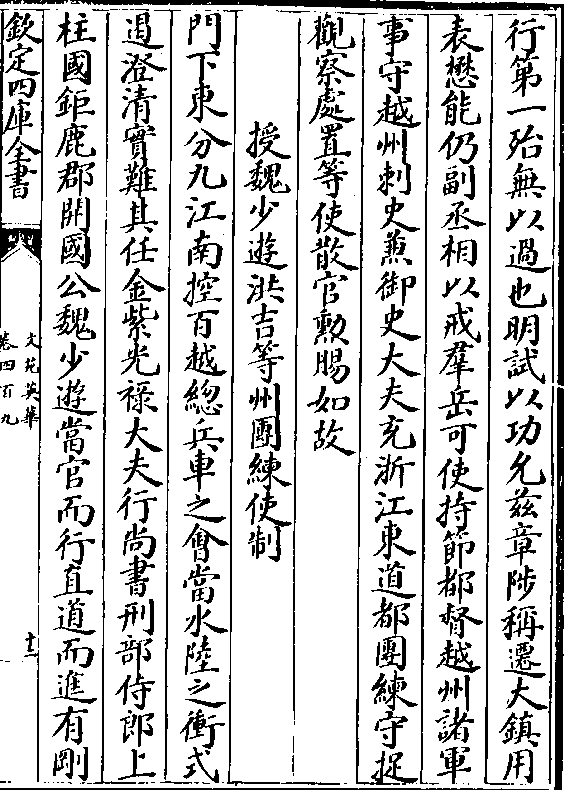 行第一殆無以過也明試以功允茲章陟稱遷大鎮用
表懋能仍副丞相以戒羣岳可使持節都督越州諸軍
事守越州刺史兼御史大夫充浙江東道都團練守捉
觀察處置等使散官勲賜如故
授魏少遊洪吉等州團練使制
門下東分九江南控百越緫兵車之會當水陸之衝式
遏澄清實難其任金紫光禄大夫行尚書刑部侍郎上
柱國鉅鹿郡開國公魏少遊當官而行直道而進有剛
欽定四庫全書
文苑英華
卷四百九
十二